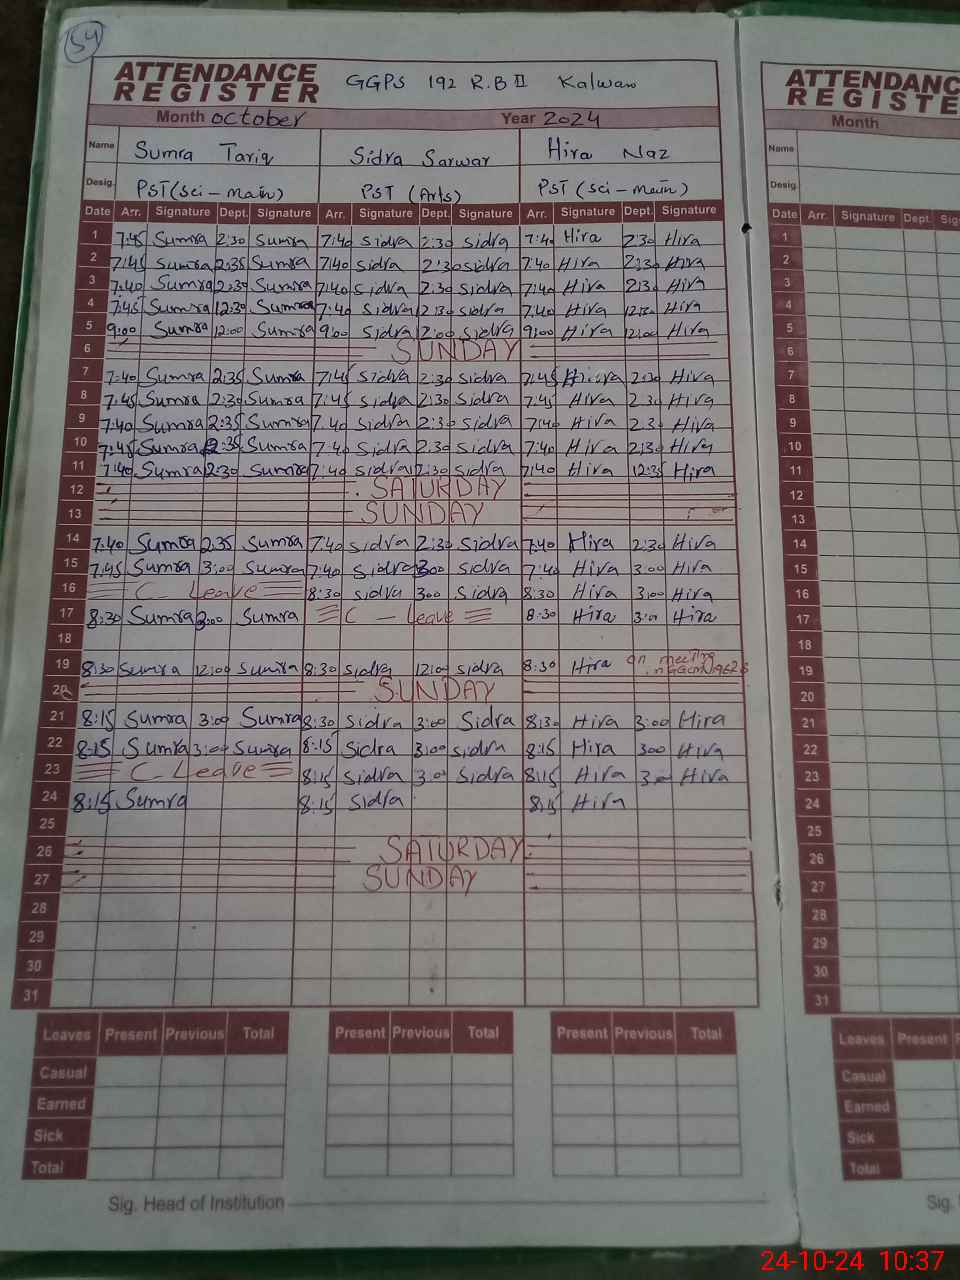 54
ATTENDANCE REGISTER GGPS 192 R.B II Kalwan
Month October Year 2024
Name Sumra Tariq Sidra Sarwar Hira Naz
Desig. PST(Sci-main) PST (Arts) PST (Sci-main)
Date Arr. Signature Dept. Signature Arr. Signature Dept. Signature Arr. Signature Dept. Signature
1 7:45 Sumra 2:30 Sumra 7:40 Sidra 2:30 Sidra 7:40 Hira 2:30 Hira
2 7:45 Sumra 2:35 Sumra 7:40 Sidra 2:30 Sidra 7:40 Hira 2:30 Hira
3 7:40 Sumra 2:30 Sumra 7:40 Sidra 2:30 Sidra 7:40 Hira 2:30 Hira
4 7:45 Sumra 12:30 Sumra 7:40 Sidra 12:30 Sidra 7:40 Hira 12:30 Hira
5 9:00 Sumra 12:00 Sumra 9:00 Sidra 12:00 Sidra 9:00 Hira 12:00 Hira
6 SUNDAY
7 7:40 Sumra 2:35 Sumra 7:45 Sidra 2:30 Sidra 7:45 Hira 2:30 Hira
8 7:45 Sumra 2:30 Sumra 7:45 Sidra 2:30 Sidra 7:45 Hira 2:30 Hira
9 7:40 Sumra 2:35 Sumra 7:40 Sidra 2:30 Sidra 7:40 Hira 2:30 Hira
10 7:45 Sumra 2:35 Sumra 7:40 Sidra 2:30 Sidra 7:40 Hira 2:30 Hira
11 7:40 Sumra 12:30 Sumra 7:40 Sidra 12:30 Sidra 7:40 Hira 12:35 Hira
12 SATURDAY
13 SUNDAY
14 7:40 Sumra 2:35 Sumra 7:40 Sidra 2:30 Sidra 7:40 Hira 2:30 Hira
15 7:45 Sumra 3:00 Sumra 7:40 Sidra 3:00 Sidra 7:40 Hira 3:00 Hira
16 C- Leave 8:30 Sidra 3:00 Sidra 8:30 Hira 3:00 Hira
17 8:30 Sumra 3:00 Sumra C - Leave 8:30 Hira 3:00 Hira
18
19 8:30 Sumra 12:00 Sumra 8:30 Sidra 12:00 Sidra 8:30 Hira on meeting
20 SUNDAY
21 8:15 Sumra 3:00 Sumra 8:30 Sidra 3:00 Sidra 8:30 Hira 3:00 Hira
22 8:15 Sumra 3:00 Sumra 8:15 Sidra 3:00 Sidra 8:15 Hira 3:00 Hira
23 C- Leave 8:15 Sidra 3:00 Sidra 8:15 Hira 3:00 Hira
24 8:15 Sumra 8:15 Sidra 8:15 Hira
25
26 SATURDAY
27 SUNDAY
28
29
30
31
Leaves Present Previous Total Present Previous Total Present Previous Total
Casual
Earned
Sick
Total
Sig. Head of Institution
ATTENDANCE
REGISTE
Month
Name
Desig.
Date Arr. Signature Dept. Sig
1
2
3
4
5
6
7
8
9
10
11
12
13
14
15
16
17
18
19
20
21
22
23
24
25
26
27
28
29
30
31
Leaves Present P
Casual
Earned
Sick
Total
Sig.
24-10-24 10:37